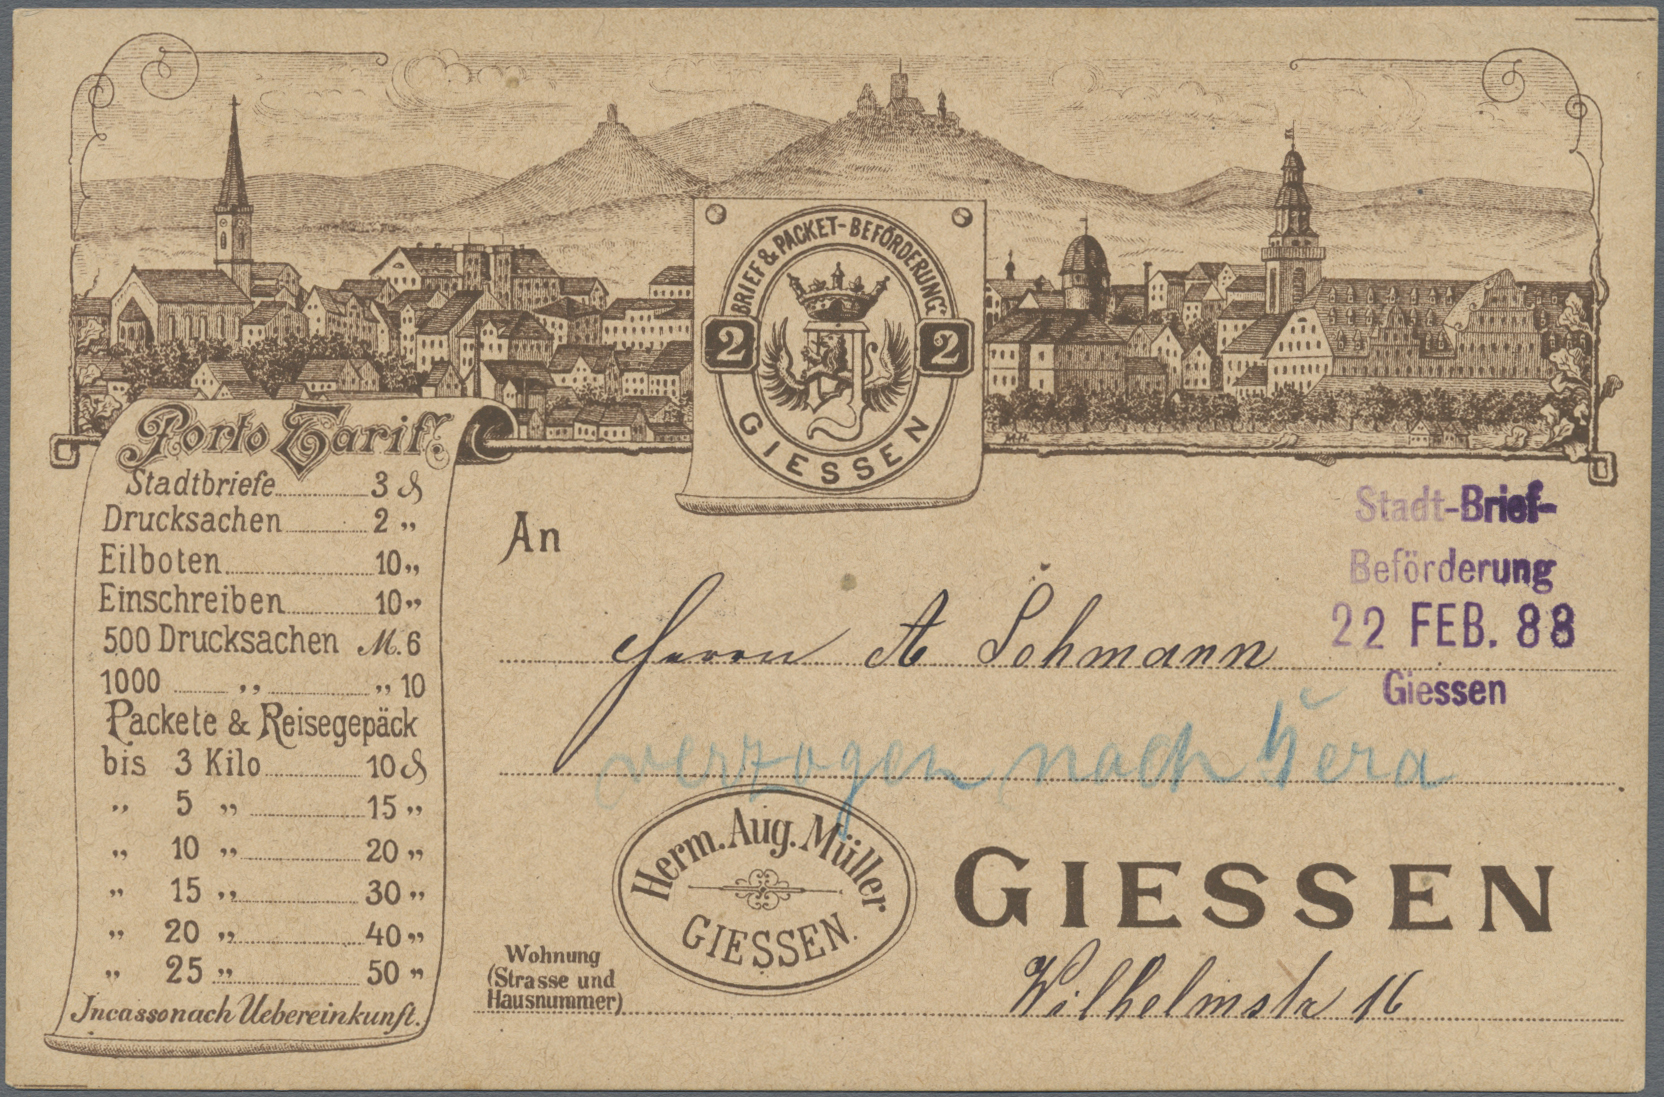 BRIEF & PACKET-BEFÖRDERUNG
2 2
GIESSEN
Porto Tarif.
Stadtbriefe 3 ₰
Drucksachen 2 „
Eilboten 10 „
Einschreiben 10 „
500 Drucksachen M. 6
1000 „ „ 10
Packete & Reisegepäck
bis 3 Kilo 10 ₰
„ 5 „ 15 „
„ 10 „ 20 „
„ 15 „ 30 „
„ 20 „ 40 „
„ 25 „ 50 „
Incasso nach Uebereinkunft.
M.H.
Stadt-Brief-
Beförderung
22 FEB. 88
Giessen
An
Herrn A Lohmann
verzogen nach Gera
Herm. Aug. Müller
GIESSEN.
GIESSEN
Wohnung
(Strasse und
Hausnummer)
Wilhelmstr 16